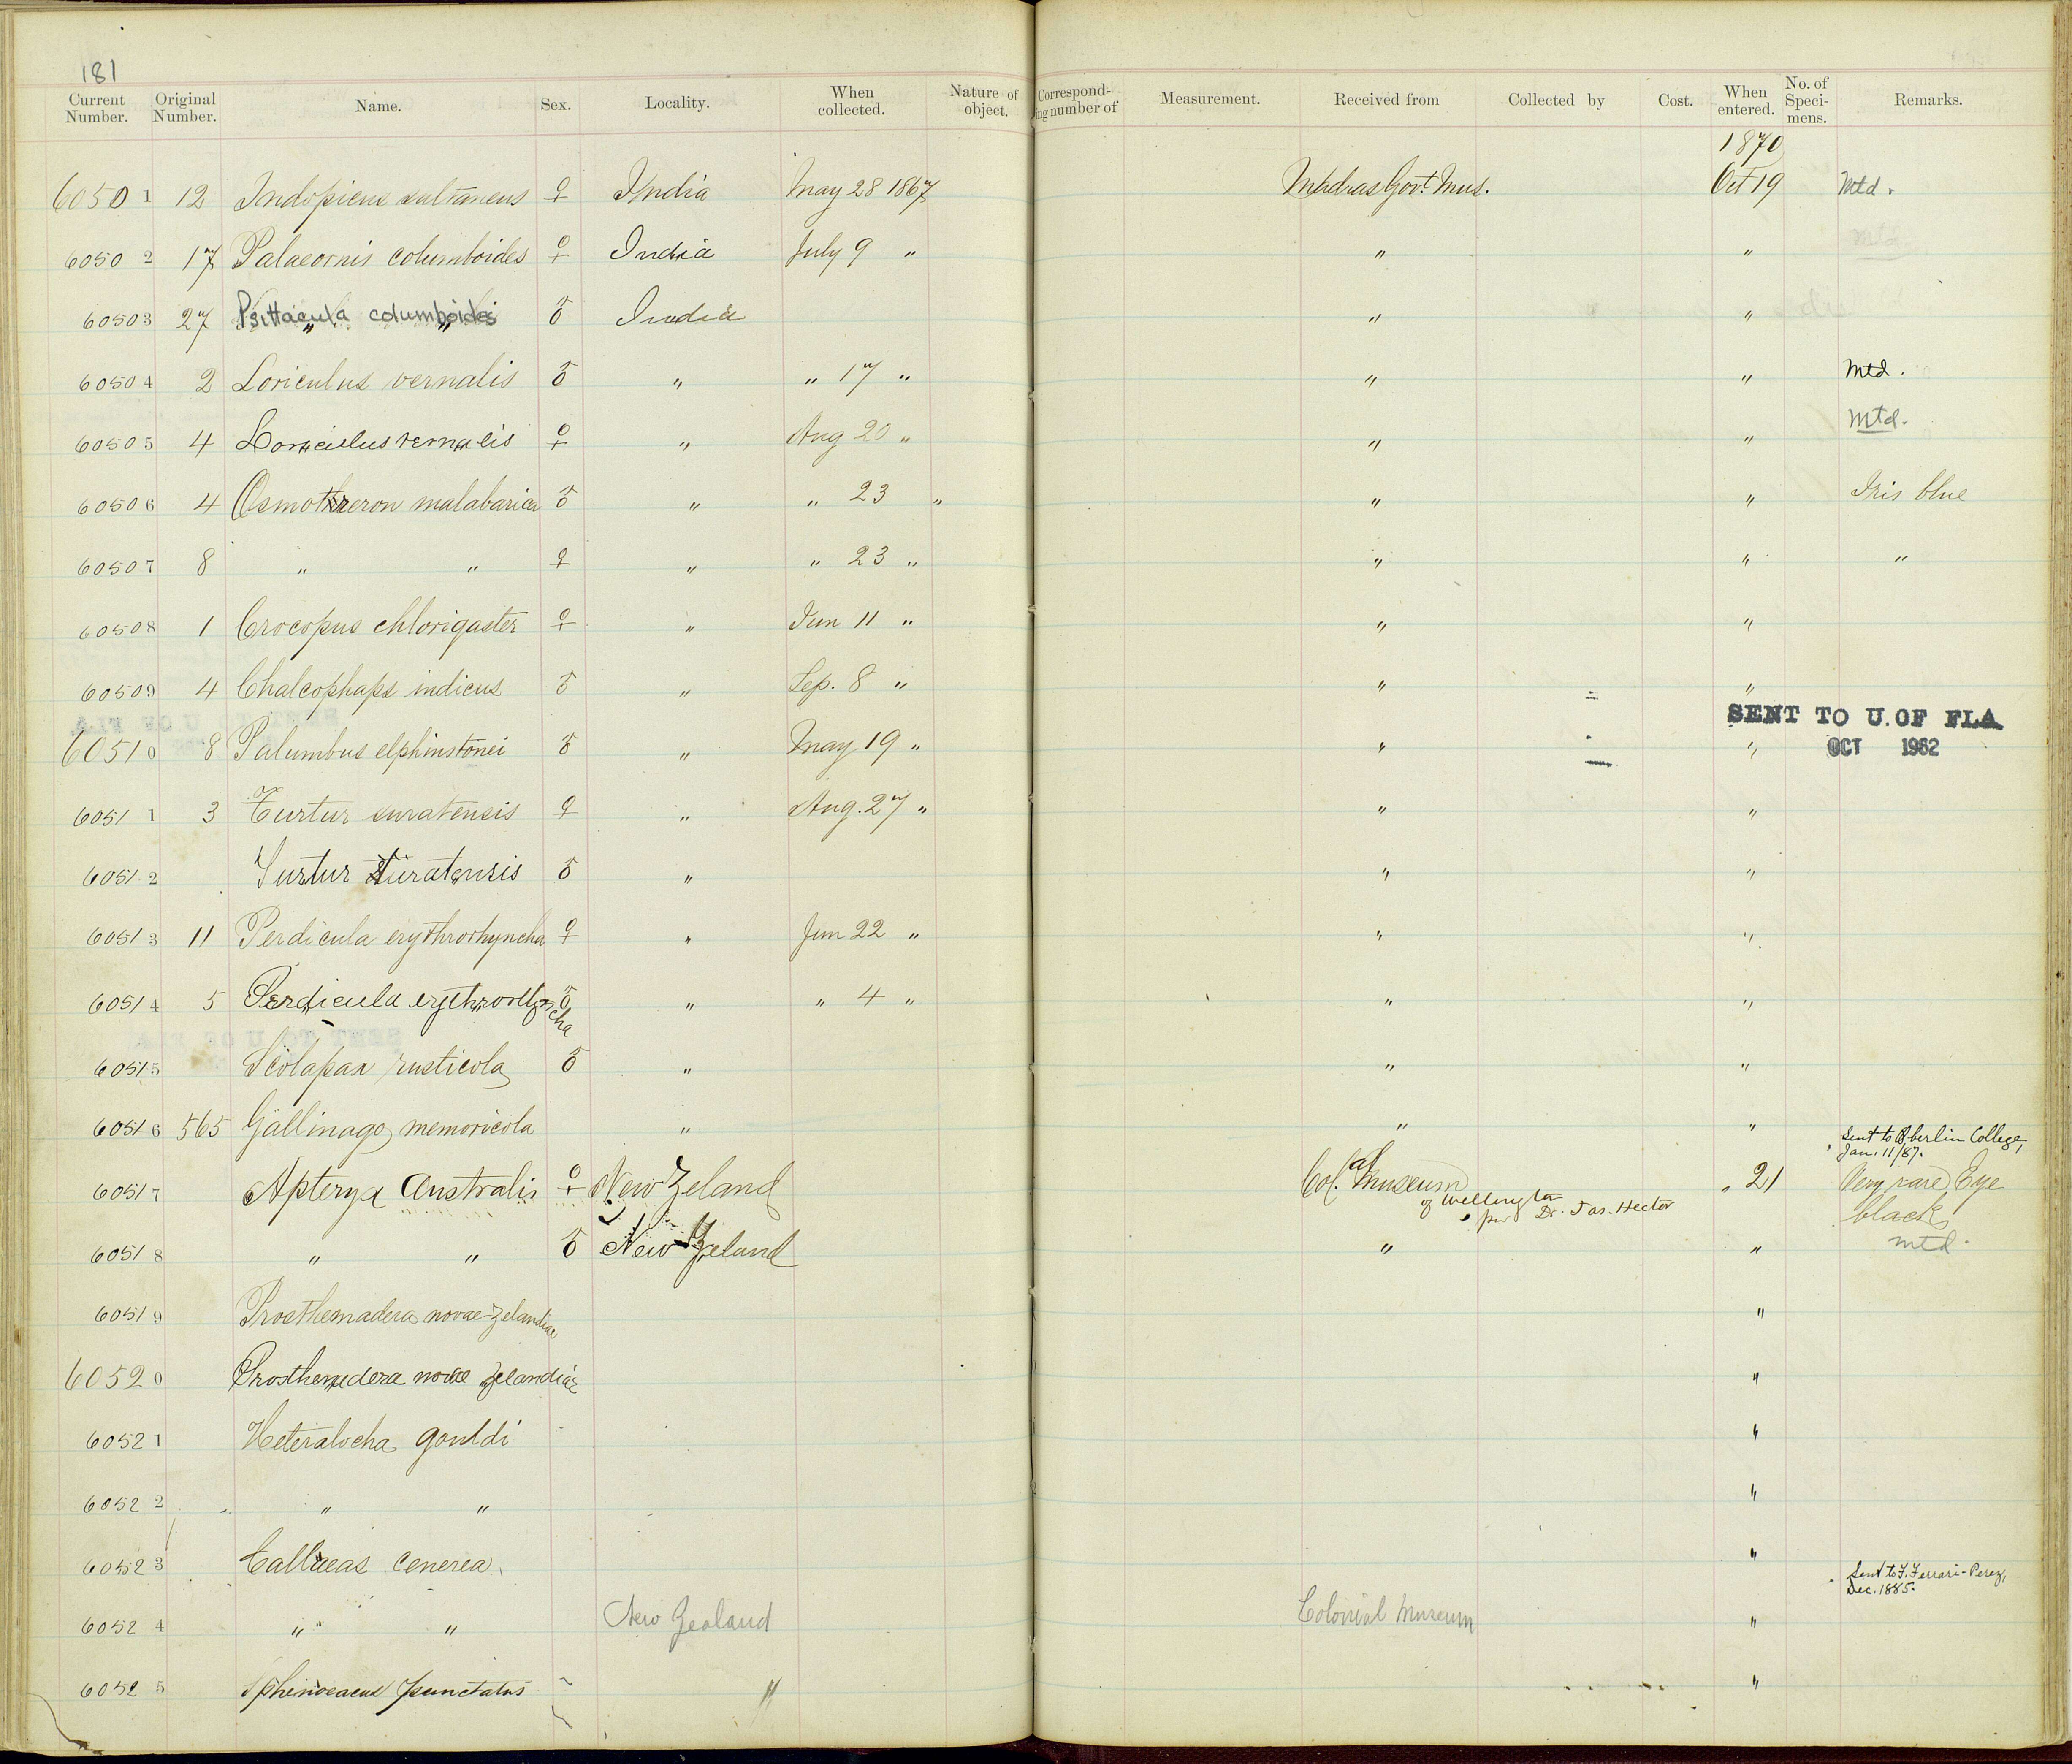 181
Current Number. Original Number. Name. Sex. Locality. When collected. Nature of object. Corresponding number of Measurement. Received from Collected by Cost. When entered. No. of Specimens. Remarks.
1870
60501 12 Indopicus sultaneus ♀ India May 28 1867 Madras Govt. Mus. Oct 19 Mtd.
60502 17 Palaeornis columboides ♀ India July 9 " " "
60503 27 Psittacula columboides ♂ India " "
60504 2 Loriculus vernalis ♂ " " 17 " " " Mtd.
60505 4 Loriculus vernalis ♀ " Aug 20 " " " Mtd.
60506 4 Osmotreron malabarica ♂ " " 23 " " " Iris blue
60507 8 " " ♀ " " 23 " " " "
60508 1 Crocopus chlorigaster ♀ " Jun 11 " " "
60509 4 Chalcophaps indicus ♂ " Sep. 8 " " "
SENT TO U. OF FLA
60510 8 Palumbus elphinstonei ♂ " May 19 " " " OCT 1962
60511 3 Turtur suratensis ♀ " Aug. 27 " " "
60512 Turtur suratensis ♂ " " "
60513 11 Perdicula erythrorhyncha ♀ " Jun 22 " " "
60514 5 Perdicula erythrorhyncha ♂ " " 4 " " "
60515 Scolapax rusticola ♂ " " "
60516 565 Gallinago memoricola " " "
Sent to Oberlin College, Jan. 11/87.
60517 Apteryx Australis ♀ New Zeland Col. Museum " 21 Very rare Eye
of Wellington per Dr. Jas. Hector black
60518 " " ♂ New Zeland " " mtd.
60519 Prosthemadera novae-zelandiae "
60520 Prosthemadera novae zelandiae "
60521 Heteralocha gouldi "
60522 " " "
60523 Callaeas cenerea "
Sent to F. Ferrari-Perez, Dec. 1885.
60524 " " New Zealand Colonial Museum "
60525 Sphenoeacus punctatus " "